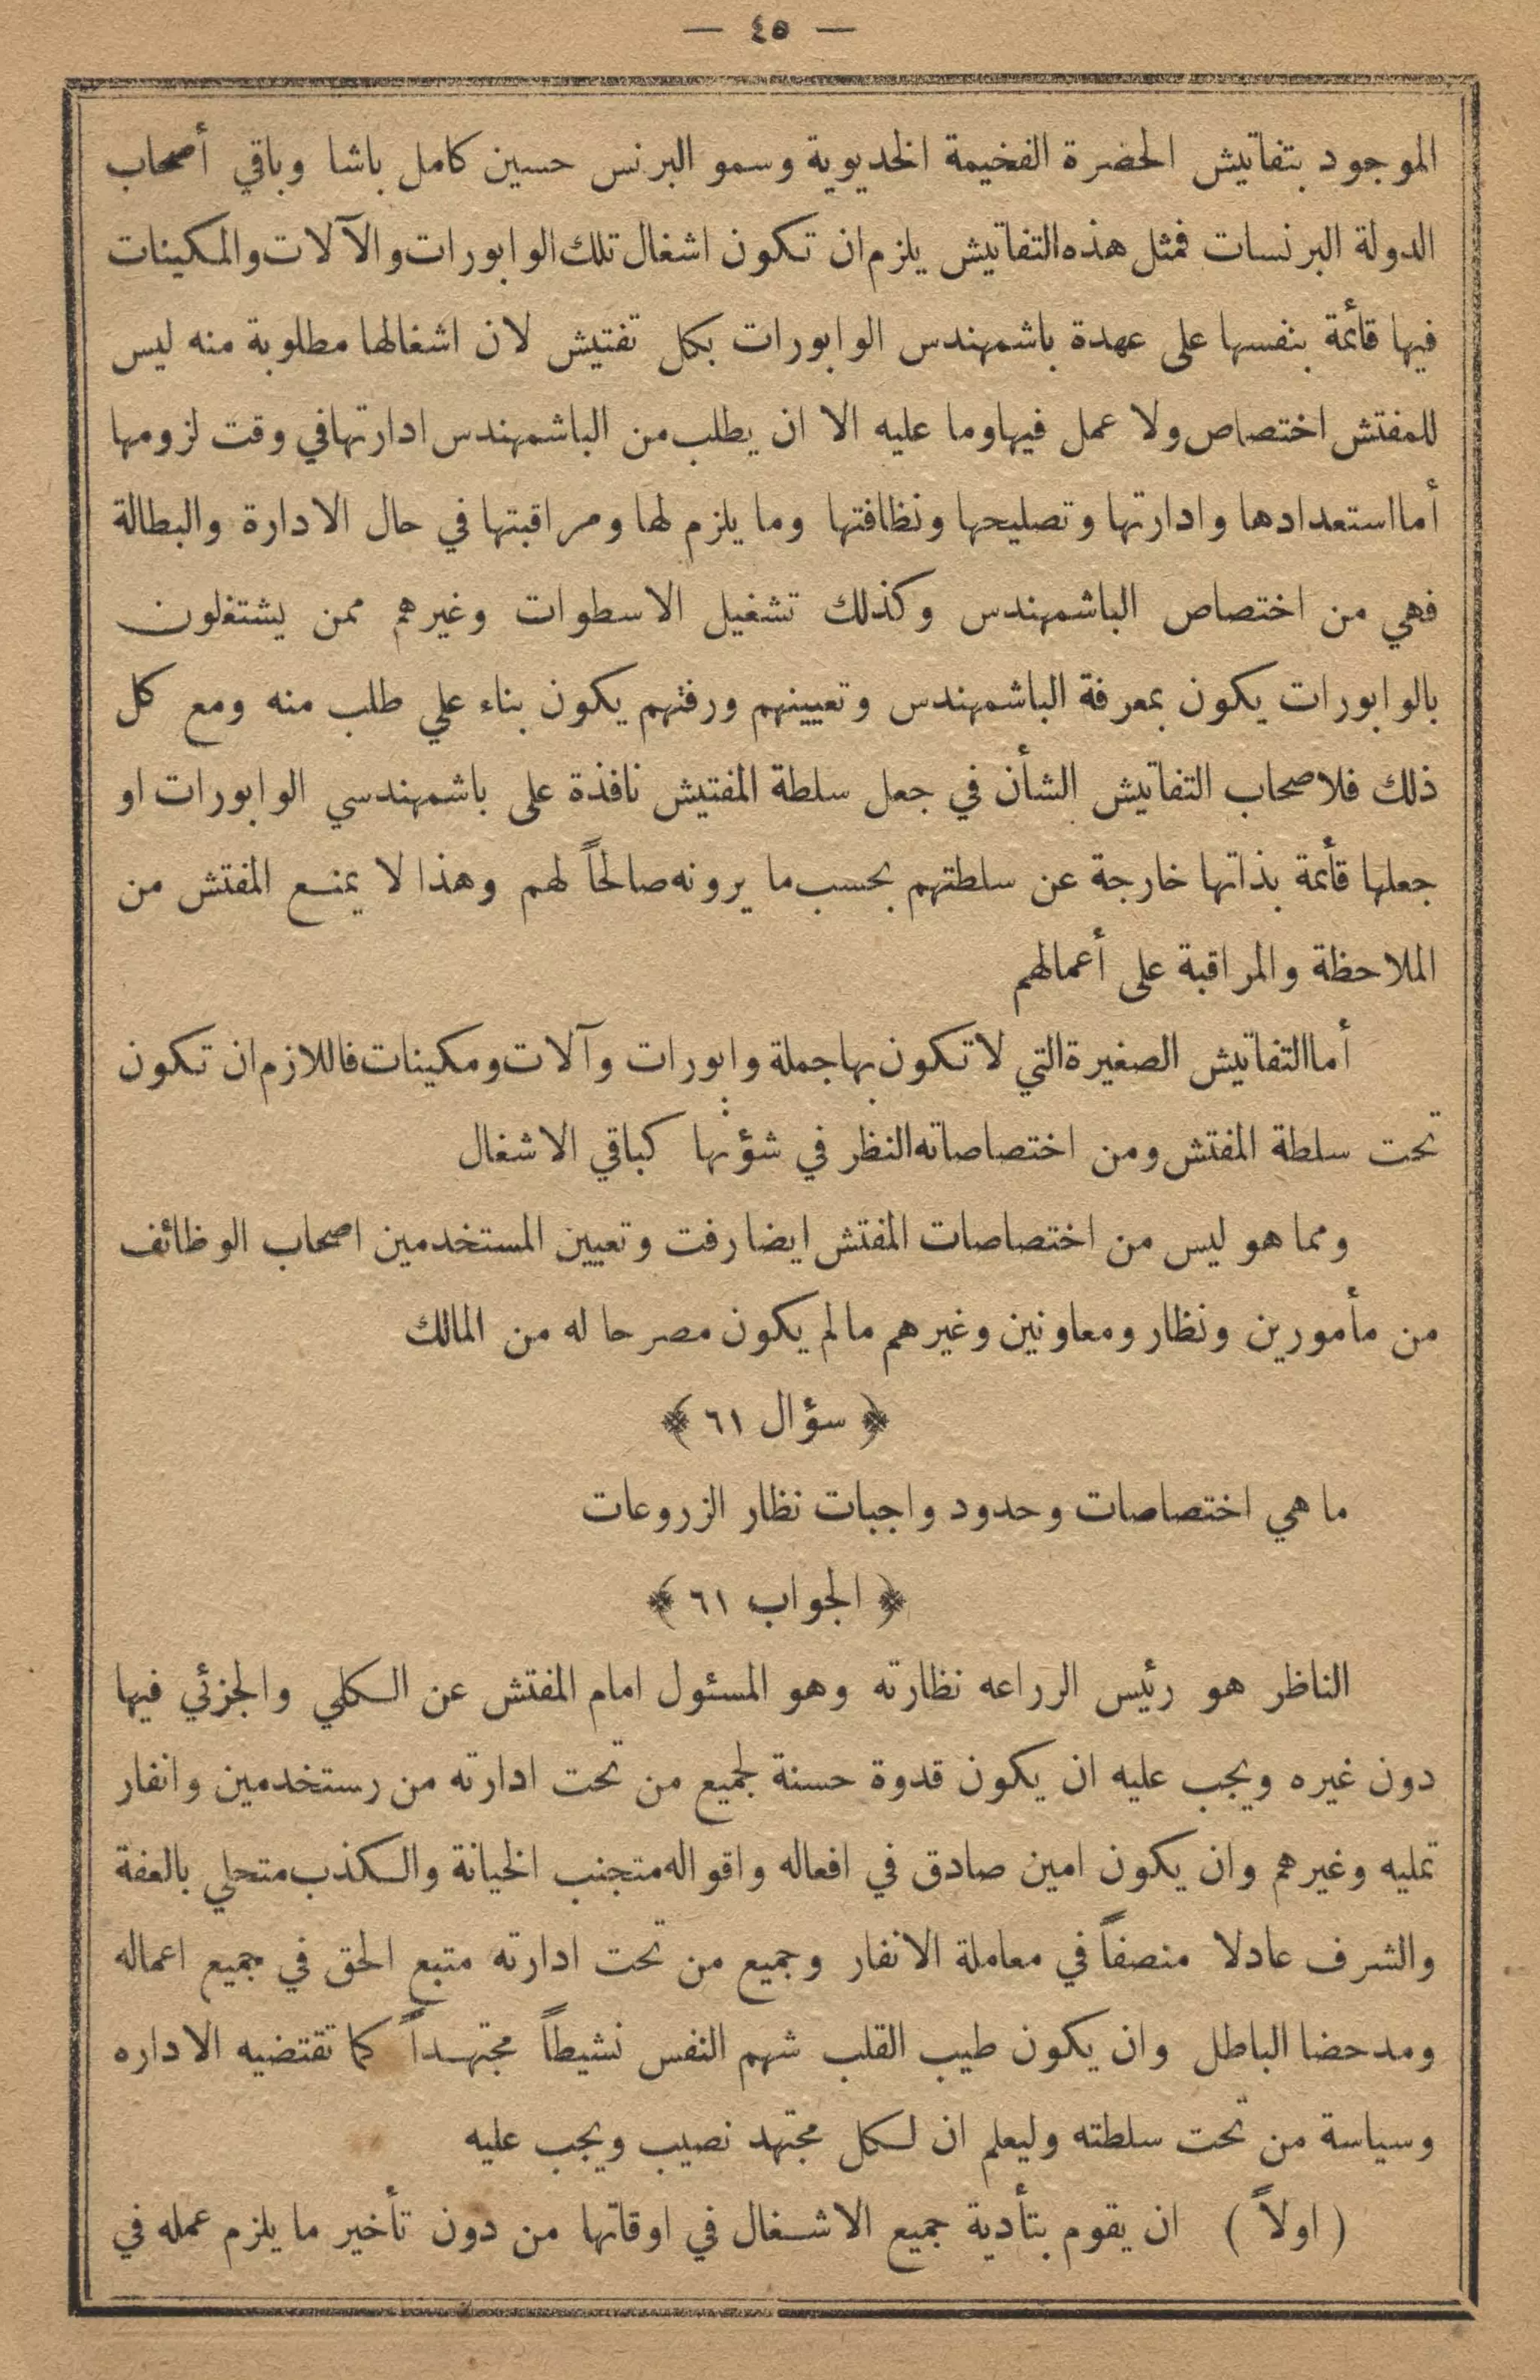 — ٤٥ —
الموجود بتفاتيش الحضرة الفخيمة الخديوية وسمو البرنس حسين كامل باشا وباقي أصحاب
الدولة البرنسات فمثل هذه التفاتيش يلزم ان تكون اشغال تلك الوابورات والآلات والمكينات
فيها قائمة بنفسها على عهدة باشمهندس الوابورات بكل تفتيش لان اشغالها مطلوبة منه ليس
للمفتش اختصاص ولا عمل فيها وما عليه الا ان يطلب من الباشمهندس ادارتها في وقت لزومها
أما استعدادها وادارتها وتصليحها ونظافتها وما يلزم لها ومراقبتها في حال الادارة والبطالة
فهي من اختصاص الباشمهندس وكذلك تشغيل الاسطوات وغيرهم ممن يشتغلون
بالوابورات يكون بمعرفة الباشمهندس وتعيينهم ورفتهم يكون بناء علي طلب منه ومع كل
ذلك فلاصحاب التفاتيش الشأن في جعل سلطة المفتيش نافذة على باشمهندسي الوابورات او
جعلها قائمة بذاتها خارجة عن سلطتهم بحسب ما يرونه صالحاً لهم وهذا لا يمنع المفتش من
الملاحظة والمراقبة على أعمالهم
أما التفاتيش الصغيرة التي لا تكون بها جملة وابورات وآلات ومكينات فاللازم ان تكون
تحت سلطة المفتش ومن اختصاصاته النظر في شؤنها كباقي الاشغال
ومما هو ليس من اختصاصات المفتش ايضا رفت وتعيين المستخدمين اصحاب الوظائف
من مأمورين ونظار ومعاونين وغيرهم مالم يكون مصرحا له من المالك
﴿ سؤال ٦١ ﴾
ما هي اختصاصات وحدود واجبات نظار الزروعات
﴿ الجواب ٦١ ﴾
الناظر هو رئيس الرراعه نظارته وهو المسئول امام المفتش عن الكلي والجزئي فيها
دون غيره ويجب عليه ان يكون قدوة حسنة لجميع من تحت ادارته من رستخدمين وانفار
تمليه وغيرهم وان يكون امين صادق في افعاله واقواله متجنب الخيانة والكذب متحلي بالعفة
والشرف عادلا منصفاً في معاملة الانفار وجميع من تحت ادارته متبع الحق في جميع اعماله
ومدحضا الباطل وان يكون طيب القلب شهم النفس نشيطاً مجتهداً كما تقتضيه الاداره
وسياسة من تحت سلطته وليعلم ان لكل مجتهد نصيب ويجب عليه
( اولاً ) ان يقوم بتأدية جميع الاشغال في اوقاتها من دون تأخير ما يلزم عمله في